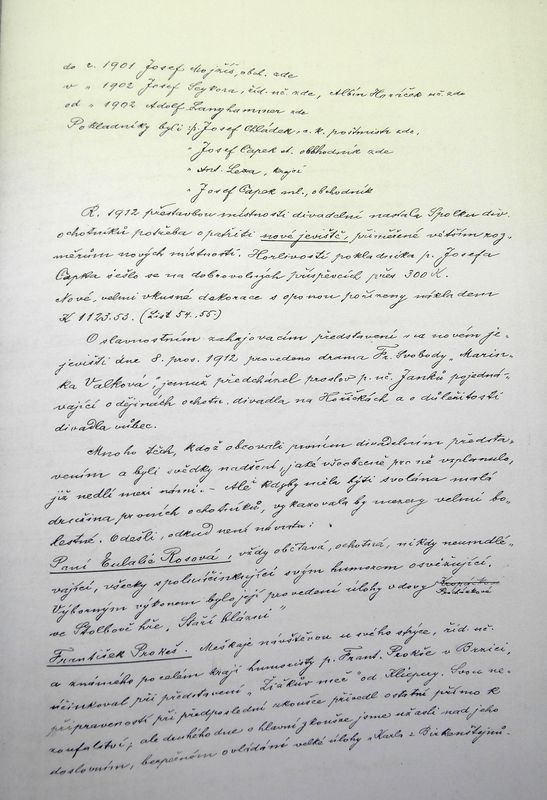 do r. 1901 Josef Mojžíš, obch. zde
v „ 1902 Josef Sýkora, říd. uč. zde, Albín Horáček uč. zde
od „ 1902 Adolf Langhammer zde
Pokladníky byli: p. Josef Chládek, c. k. poštmistr zde,
„ Josef Čapek st. obchodník zde
„ Ant. Leza, krejčí
„ Josef Čapek ml., obchodník
R. 1912 přestavbou místnosti divadelní nastala Spolku div.
ochotníků potřeba opatřiti nové jeviště, přiměřené větším roz-
měrům nových místností. Horlivostí pokladníka p. Josefa
Čapka sešlo se na dobrovolných příspěvcích přes 300 K.
Nové, velmi vkusné dekorace s oponou pořízeny nákladem
K 1123.53. (List 54.-55.)
O slavnostním zahajovacím představení na novém je-
jevišti dne 8. pros. 1912 provedeno drama Fr. Svobody „Marin-
ka Válková", jemuž předcházel proslov p. uč. Janků pojedná-
vající o dějinách ochotn. divadla na Hořičkách a o důležitosti
divadla vůbec.
Mnoho těch, kdož obcovali prvním divadelním předsta-
vením a byli svědky nadšení, jaké všeobecně pro ně vzplanulo,
již nedlí mezi námi. - Ale kdyby měla býti svolána malá
družina prvních ochotníků, vykazovala by mezery velmi bo-
lestné. Odešli, odkud není návratu:
Paní Eulalie Rosová, vždy obětavá, ochotná, nikdy neumdlé-
vající, všecky spoluúčinkující svým humorem osvěžující.
Výborným výkonem bylo její provedení úlohy vdovy
ve Štolbově hře „Staří blázni"
František Prokeš. Meškaje návštěvou u svého strýce, říd. uč.
a známého po celém kraji humoristy p. Frant. Prokše v Brzici,
účinkoval při představení „Žižkův meč" od Klicpery. Svou ne-
připraveností při předposlední zkoušce přivedl ostatní přímo k
zoufalství, ale druhého dne o hlavní zkoušce jsme užasli nad jeho
doslovním, bezpečném ovládání velké úlohy „Karla z Birkenštejnů.